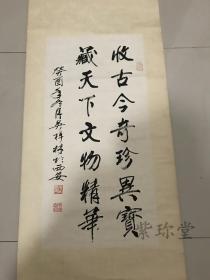 收古今奇珍異寶
藏天下文物精華
癸酉年冬月吳祥林於西安
紫珎堂